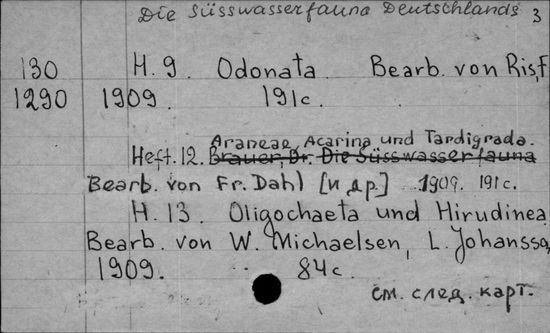 Die Süsswasserfauna Deutschlands 3
130 H. 9. Odonata. Bearb. von Ris, F
1290 1909. 191c.
Araneae, Acarina und Tardigrada.
Heft. 12. Brauer, Dr. Die Süsswasserfauna
Bearb. von Fr. Dahl [и др.] 1909. 191c.
H. 13. Oligochaeta und Hirudinea
Bearb. von W. Michaelsen, L. Johansso,
1909. 84c.
см. след. карт.